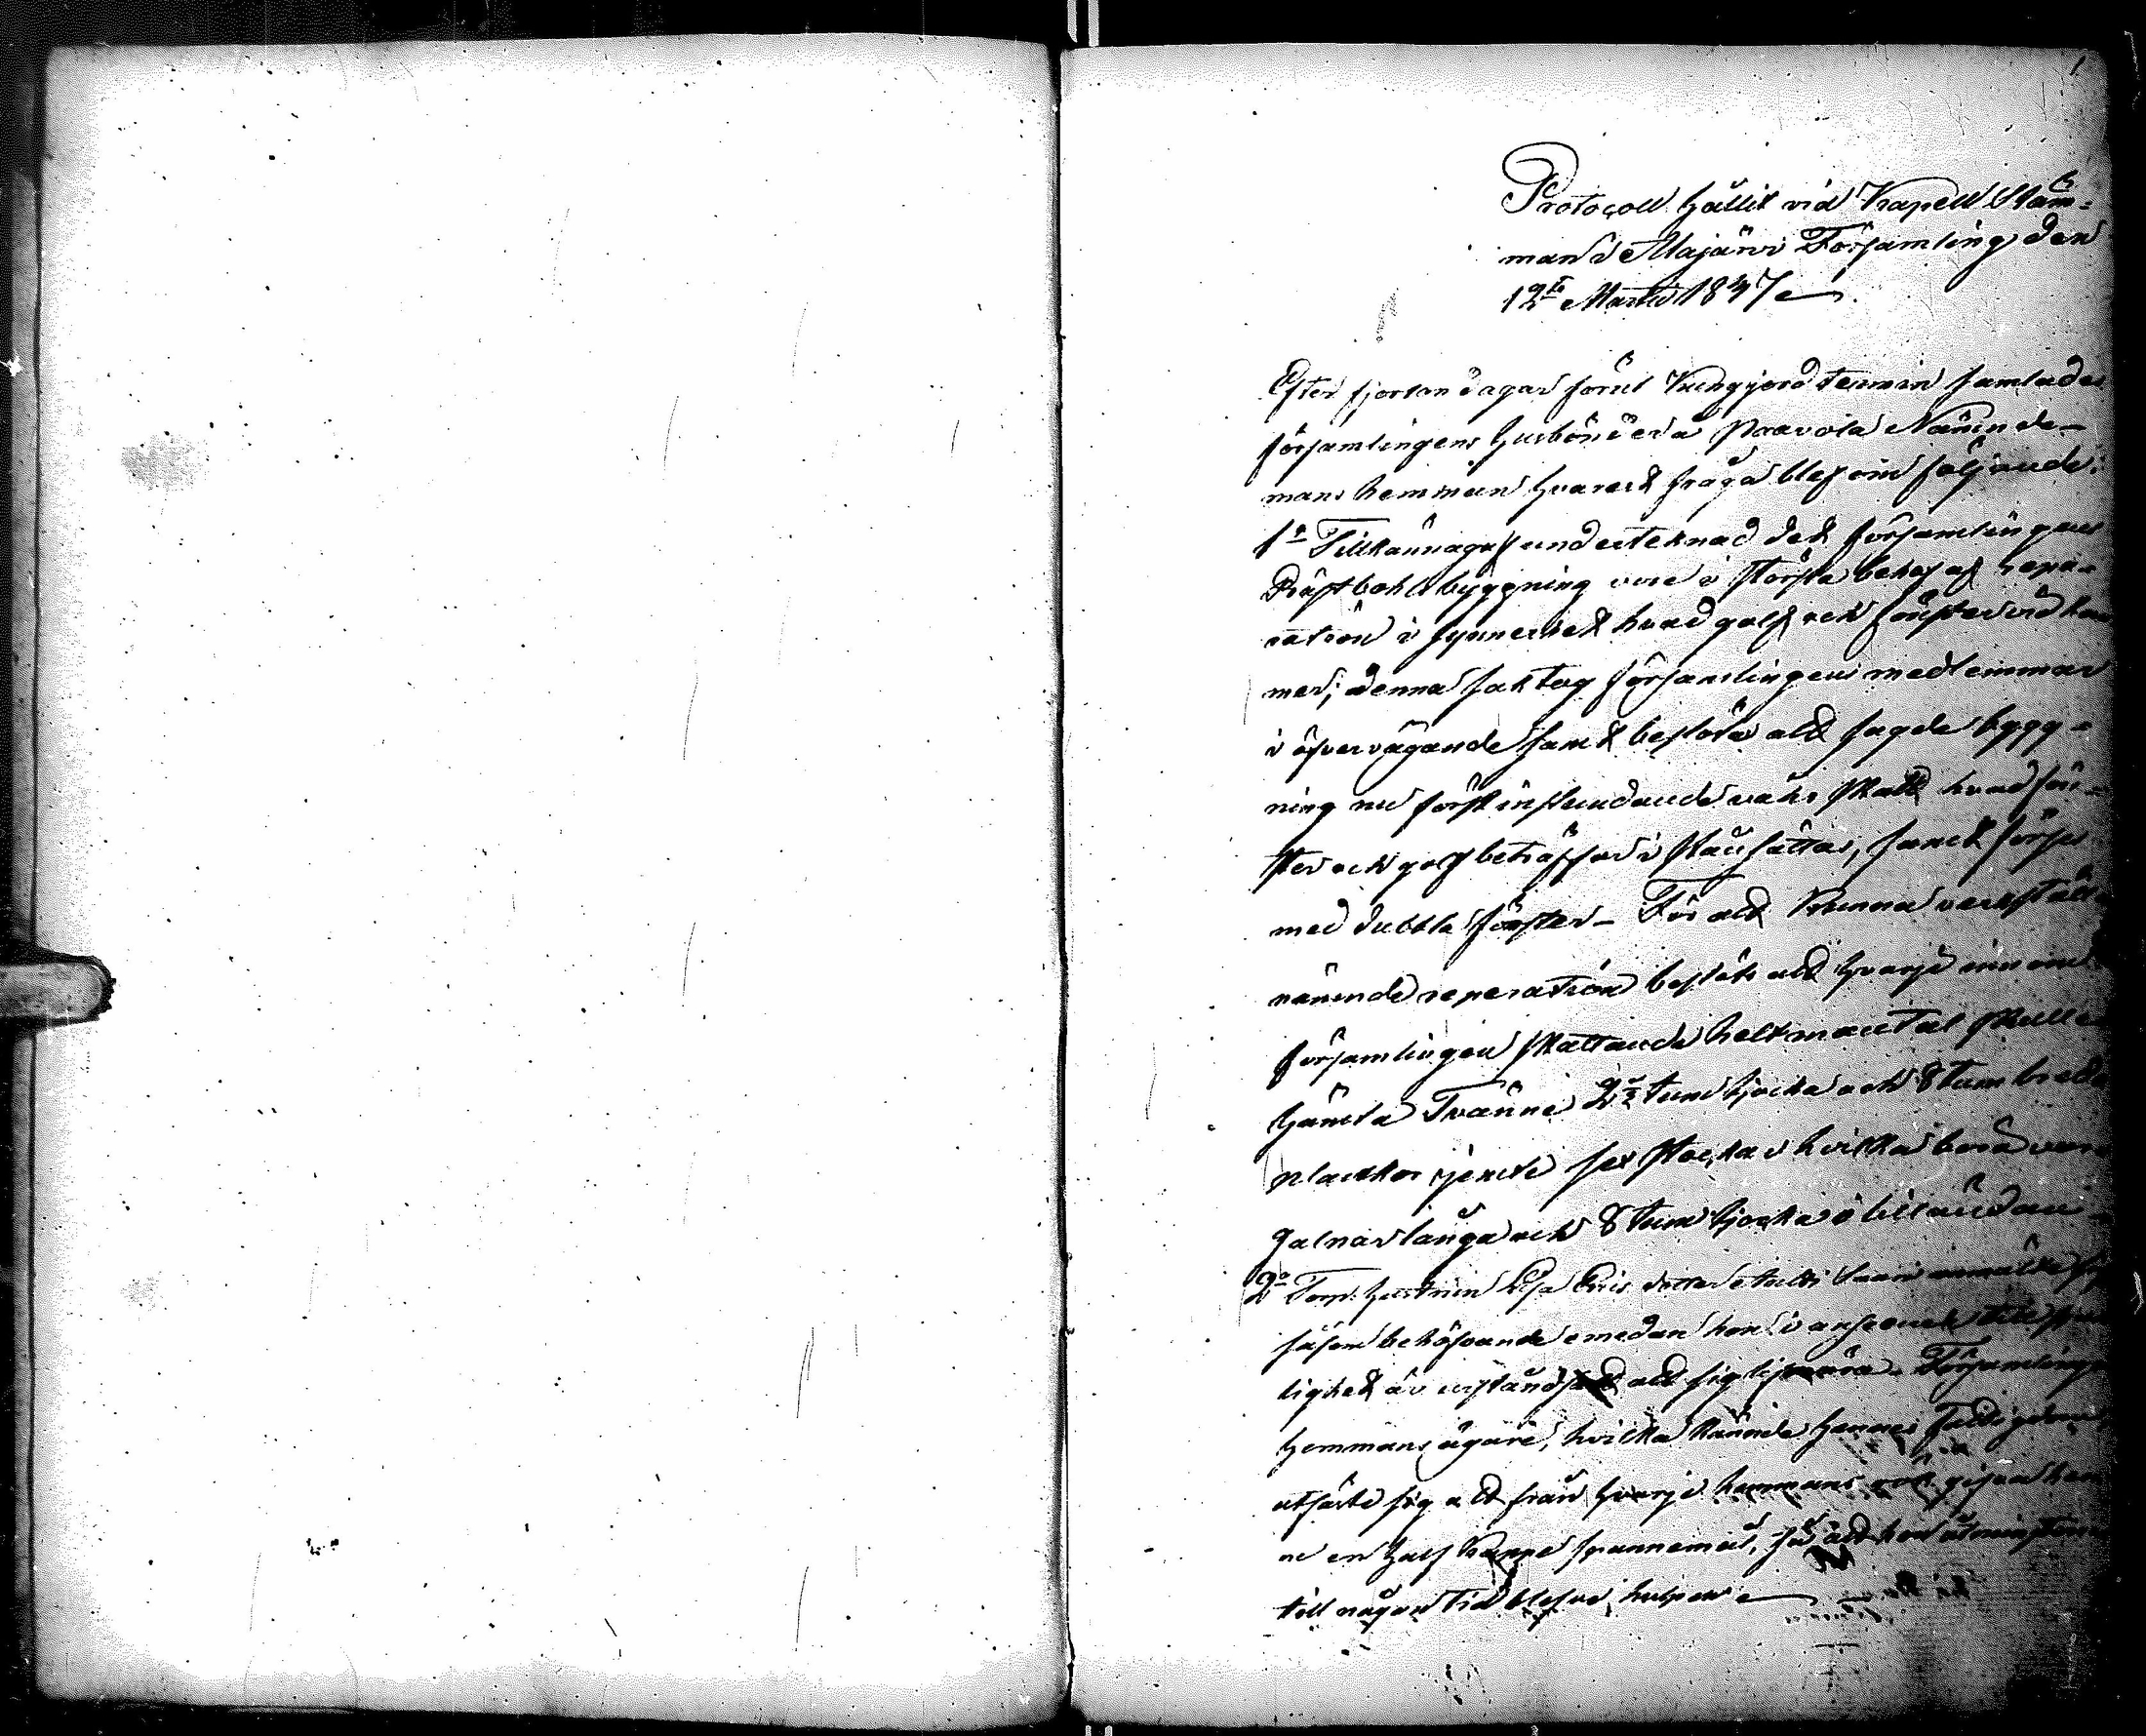 1
Protocoll hållit vid Kapell Stäm-
man i Alajärvi Församling den
12te Martii 1847
Efter fjorton dagar förut kungjord termin samlades
församlingens husbönder å Paavola Nämnde-
mans hemman hvarest fråga blef om följande:
1o Tillkännagaf undertecknad det församlingens
Prästbohls byggning vore i största behof af repa-
ration i synnerhet hvad golf och fönster vid kom
mer; denna sak tog församlingens medlemmar
i öfvervägande samt beslöto att sagde bygg-
ning nu först instundande vår skall hvad fön-
ster och golf beträffar i stånd sättas, samt förses
med dubbla fönster – För att kunna verkställa
nämnde reperation beslöts att hvarje inom
församlingen skattande helt mantal skulle
hämta Tvänne 2½ tum tjocka och 8 tum breda
plankor jemte sex stockar hvilka böra vara
famnar långa och 8 tum tjocka i lilländan
2o Torp. hustrun Lisa Eric dotter
såsom behöfvande emedan hon i anseende till
lighet är urståndsatt att sig lifnära. Församlingens
Hemmans ägare, hvilka kände hennes fattigdom
utfäste sig att från hvarje hemmans gifva hen
ne en half kappe spannemål, så att hon åtminstone
till någon tid blefve hulpen